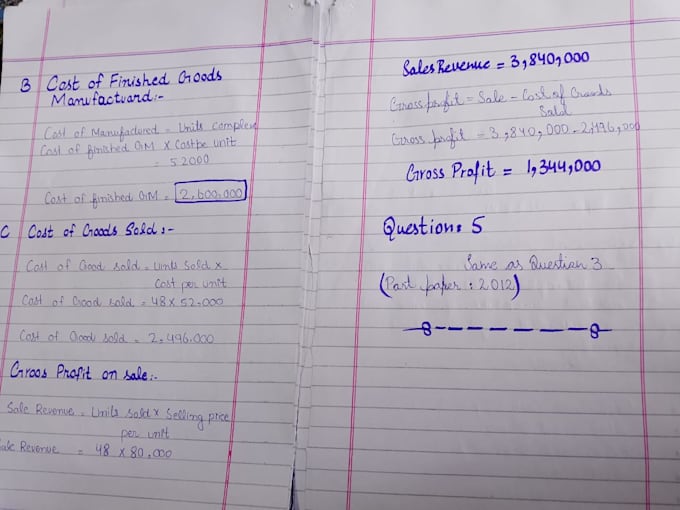 B Cost of Finished Goods
Manufactuard:-
Cost of Manufactured = Units complete
Cost of finished GM x Cost pe unit
= 52000
Cost of finished GM = 2,600,000
C Cost of Goods Sold :-
Cost of Good sold = Units Sold x
Cost per unit
Cost of Good sold = 48 x 52,000
Cost of Good sold = 2,496,000
Gross Profit on sale:-
Sale Revenue = Units sold x Selling price
per unit
Sale Revenue = 48 x 80,000
Sales Revenue = 3,840,000
Gross profit = Sale - Cost of Goods
Sold
Gross profit = 3,840,000 - 2,496,000
Gross Profit = 1,344,000
Question: 5
Same as Question 3
(Past paper : 2012)